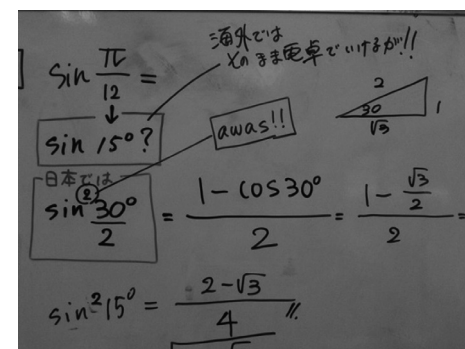 海外では
そのまま電卓でいけるが!!
] sin π/12 =
↓
sin 15°?
awas!!
2
30
1
√3
日本では
sin² 30°/2 = (1 - cos30°)/2 = (1 - √3/2)/2 =
sin²15° = (2-√3)/4 //.